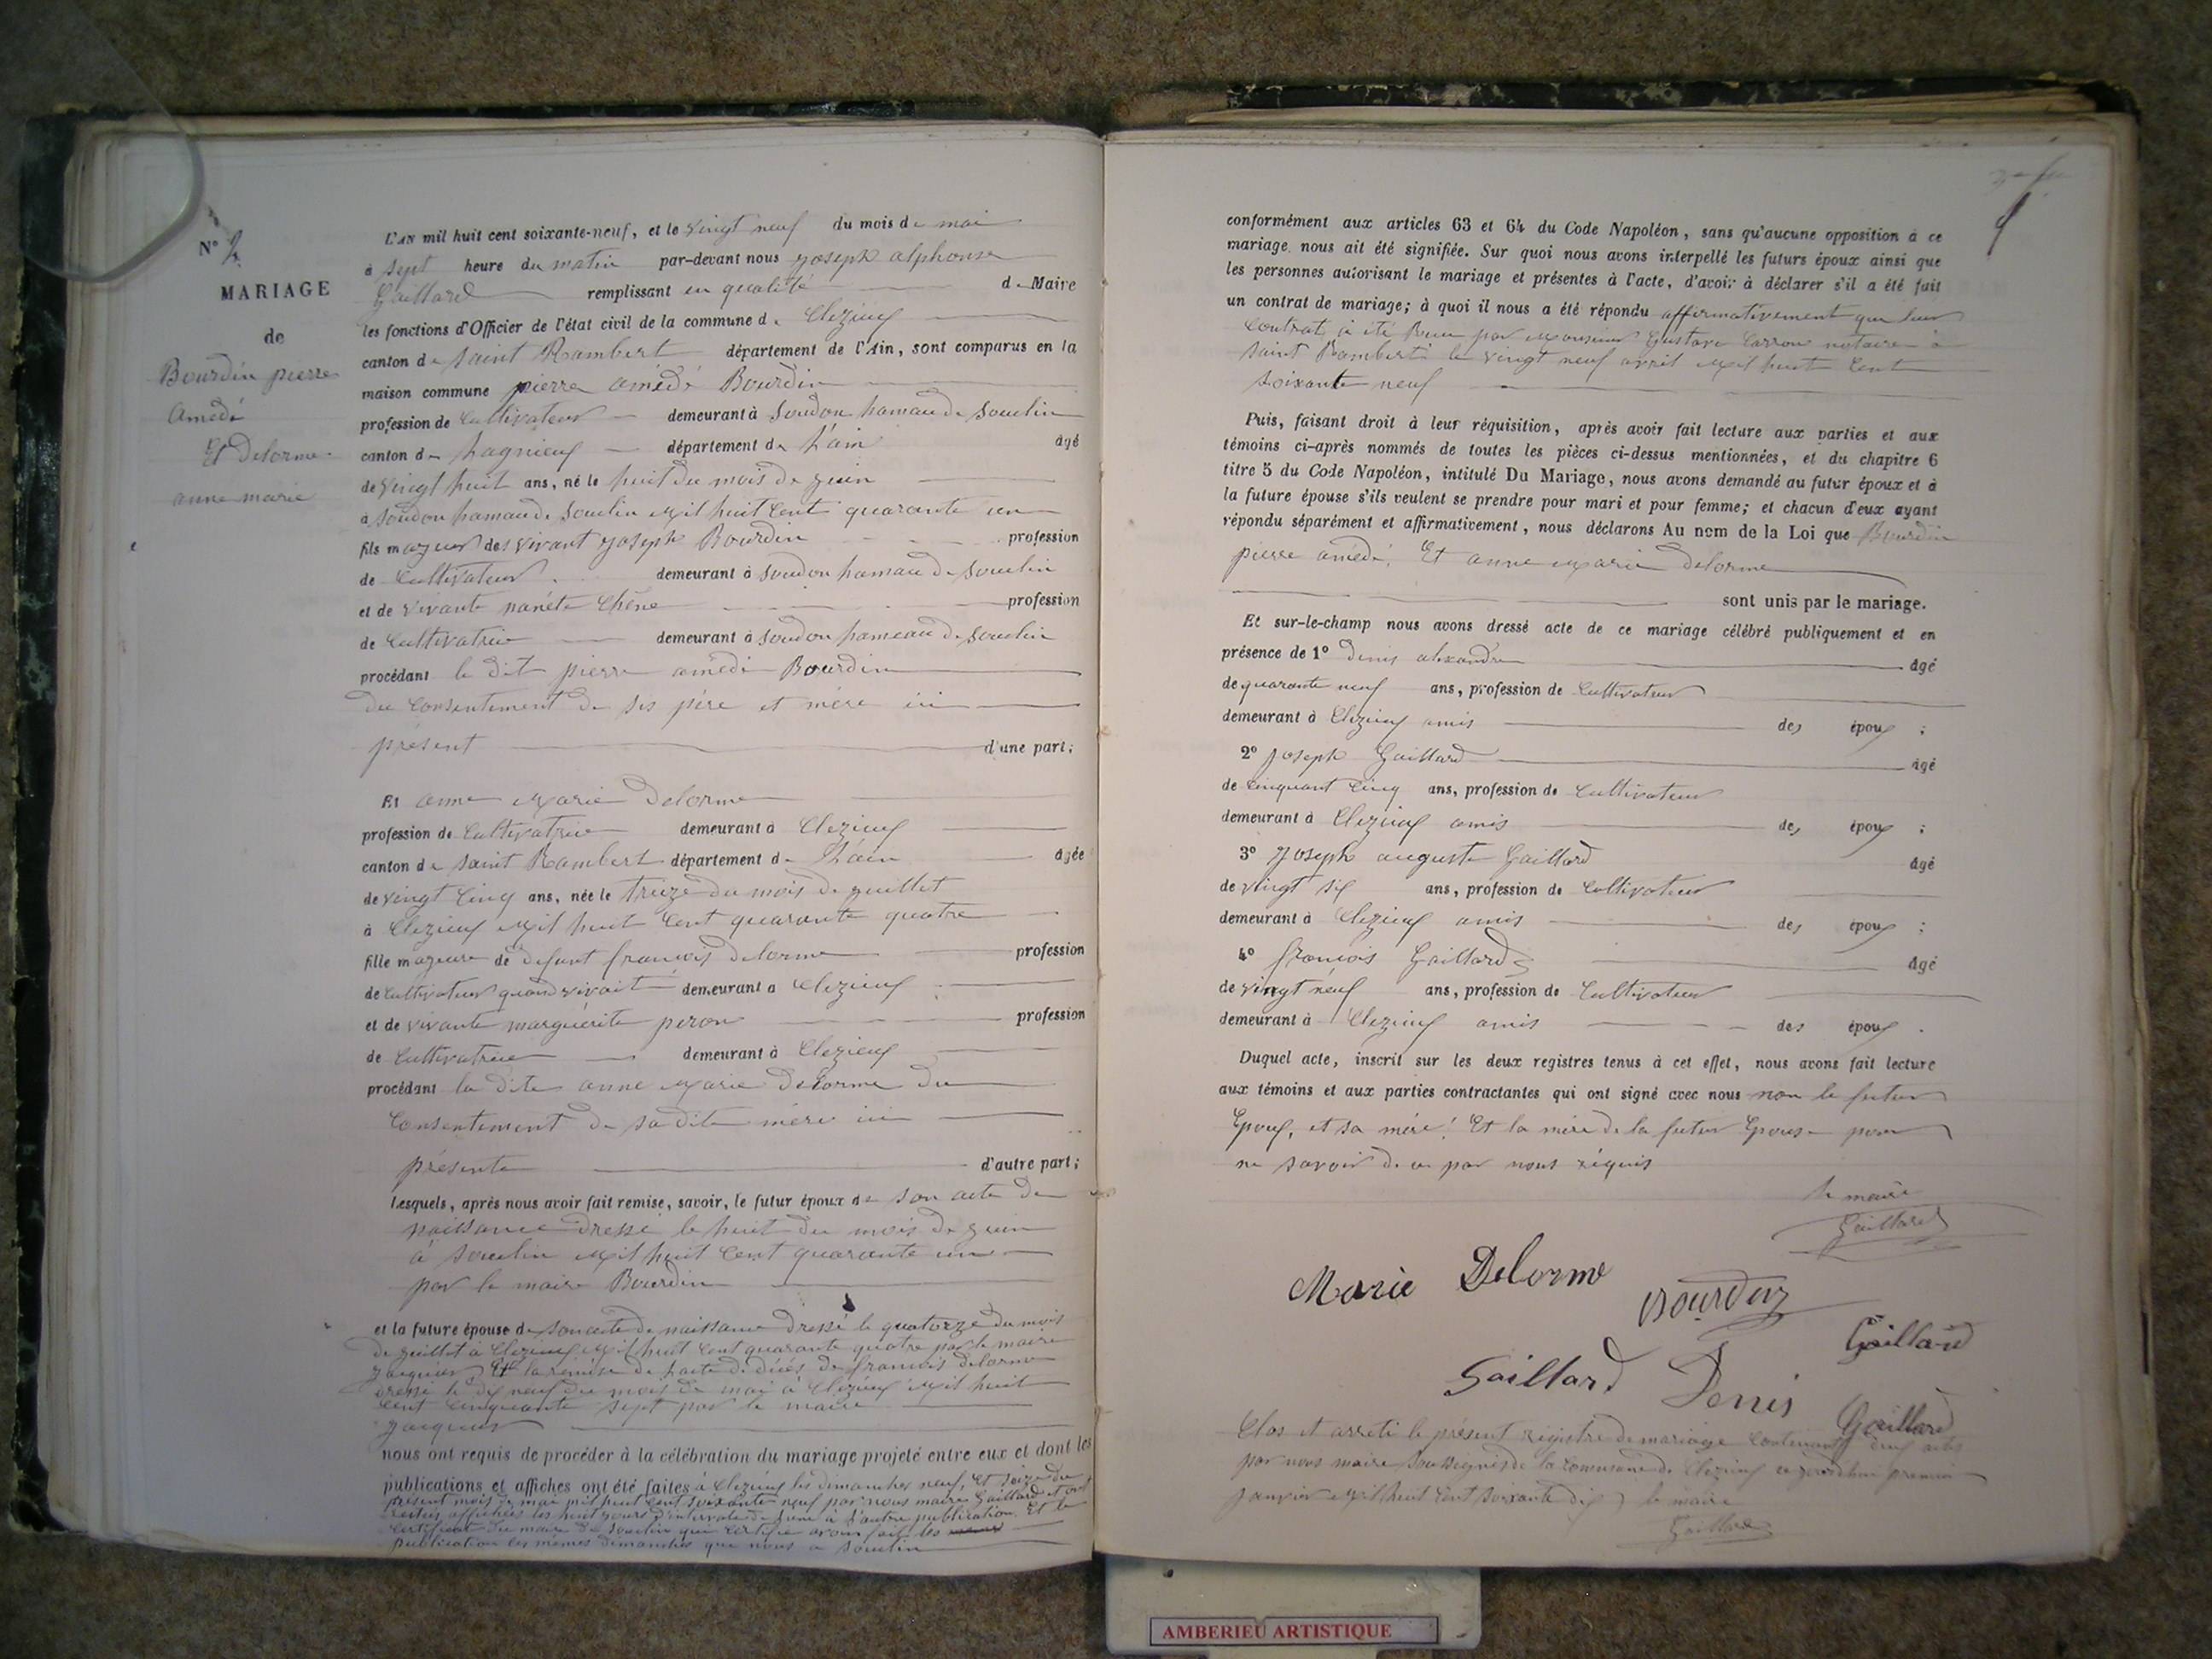 N° 2
MARIAGE
de
Bourdin pierre
Amédé
Et Delorme
anne marie
L'AN mil huit cent soixante-neuf, et le vingt neuf du mois de mai
à sept heure du matin par-devant nous joseph alphonse
Gaillard remplissant en qualité de Maire
les fonctions d'Officier de l'état civil de la commune de Clezieux
canton de saint Rambert département de l'Ain, sont comparus en la
maison commune pierre amédé Bourdin
profession de Cultivateur demeurant à soudon hamau de souclin
canton de Lagnieux département de L'ain âgé
de vingt huit ans, né le huit du mois de juin
à soudon hamau de souclin mil huit Cent quarante un
fils majeur des vivant joseph Bourdin profession
de Cultivateur demeurant à soudon hamau de souclin
et de vivante nanéte Chêne profession
de Cultivatrice demeurant à soudon hameau de souclin
procédant le dit pierre amédé Bourdin
du Consentement de ses père et mère ici
présent d'une part;
Et anne Marie Delorme
profession de Cultivatrice demeurant à Clezieux
canton de saint Rambert département de L'ain âgée
de vingt Cinq ans, née le treize du mois de juillet
à Clezieux Mil huit Cent quarante quatre
fille majeure de defunt francois delorme profession
de Cultivateur quand vivait demeurant a Clezieux
et de vivante marguérite peron profession
de Cultivatrice demeurant à Clezieux
procédant la dite anne Marie Delorme du
Consentement de sa dite mère ici
présente d'autre part;
Lesquels, après nous avoir fait remise, savoir, le futur époux de son acte de
naissance dressé le huit du mois de juin
à souclin Mil huit Cent quarante un
par le maire Bourdin
et la future épouse de son acte de naissance dressé le quatorze du mois
de juillet à Clezieux Mil huit Cent quarante quatre par le maire
Et la remise de l'acte de décés de francois delorme
dressé le dix neuf du mois de mai à Clezieux Mil huit
Cent Cinquante sept par le maire
nous ont requis de procéder à la célébration du mariage projeté entre eux et dont les
publications et affiches ont été faites à Clezieux les dimanches neuf, et seize du
présent mois de mai mil huit Cent soixante neuf par nous maire Gaillard et ont
restés affichées les huit jours d'intervale de l'une à l'autre publication. Et le
Certificat du maire de souclin qui Certifie avoir fait les
publication les mêmes dimanches que nous a souclin
conformément aux articles 63 et 64 du Code Napoléon, sans qu'aucune opposition à ce
mariage nous ait été signifiée. Sur quoi nous avons interpellé les futurs époux ainsi que
les personnes autorisant le mariage et présentes à l'acte, d'avoir à déclarer s'il a été fait
un contrat de mariage; à quoi il nous a été répondu affirmativement que leur
Contrat à été Reçu par Monsieur Gustave Carron notaire à
saint Rambert le vingt neuf avril Mil huit Cent
soixante neuf
Puis, faisant droit à leur réquisition, après avoir fait lecture aux parties et aux
témoins ci-après nommés de toutes les pièces ci-dessus mentionnées, et du chapitre 6
titre 5 du Code Napoléon, intitulé Du Mariage, nous avons demandé au futur époux et à
la future épouse s'ils veulent se prendre pour mari et pour femme; et chacun d'eux ayant
répondu séparément et affirmativement, nous déclarons Au nom de la Loi que Bourdin
pierre amédé. Et anne Marie delorme
sont unis par le mariage.
Et sur-le-champ nous avons dressé acte de ce mariage célébré publiquement et en
présence de 1° Denis alexandre âgé
de quarante neuf ans, profession de Cultivateur
demeurant à Clezieux amis des époux ;
2° joseph Gaillard âgé
de Cinquant Cinq ans, profession de Cultivateur
demeurant à Clezieux amis des époux ;
3° joseph auguste Gaillard âgé
de vingt six ans, profession de Cultivateur
demeurant à Clezieux amis des époux ;
4° francois Gaillard âgé
de vingt neuf ans, profession de Cultivateur
demeurant à Clezieux amis des époux .
Duquel acte, inscrit sur les deux registres tenus à cet effet, nous avons fait lecture
aux témoins et aux parties contractantes qui ont signé avec nous non le futur
Epoux, et sa mère! Et la mère de la futur Epouse pour
ne savoir de ce par nous réquis
le maire
Gaillard
Marie Delorme
Bourdin
Gaillard
Gaillard Denis
Gaillard
Clos et arreté le présent régistre de mariage Contenant deux actes
par nous maire soussignés de la Commune de Clezieux ce jourdhui premier
janvier Mil huit Cent soixante dix le maire
Gaillard
AMBERIEU ARTISTIQUE